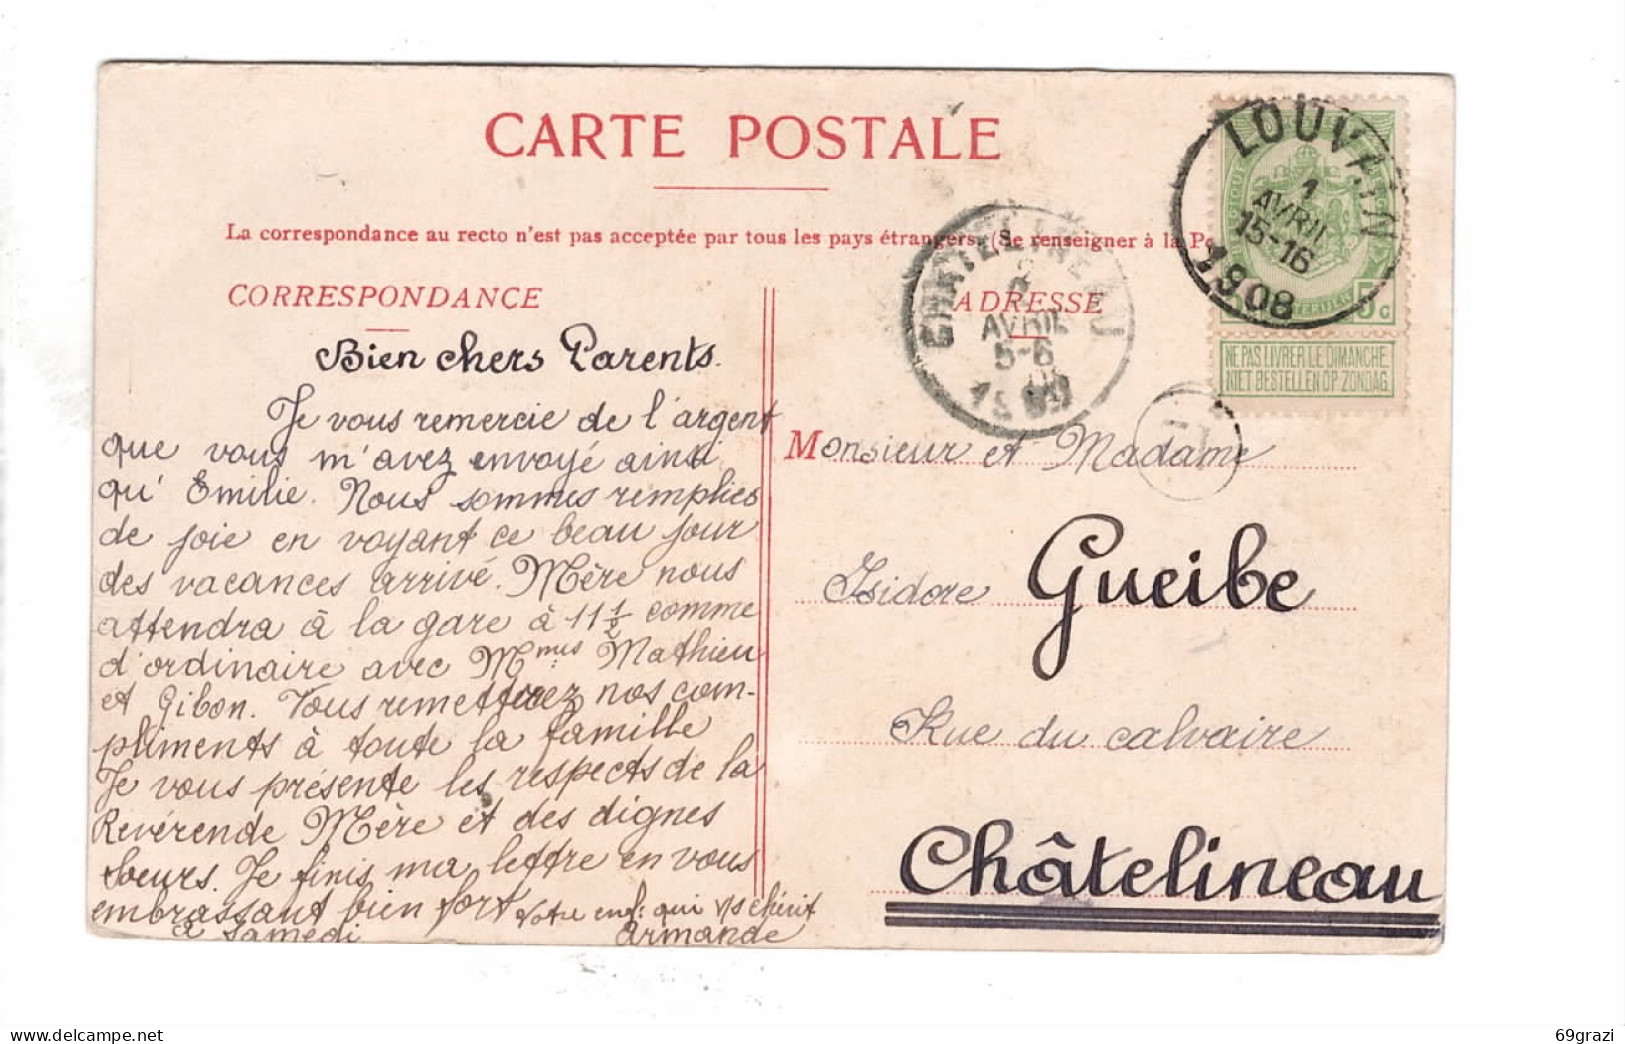 CARTE POSTALE
La correspondance au recto n'est pas acceptée par tous les pays étrangers. (Se renseigner à la Po
CORRESPONDANCE
Bien chers Parents.
Je vous remercie de l'argent
que vous m'avez envoyé ainsi
qu'Emilie. Nous sommes remplies
de joie en voyant ce beau jour
des vacances arrivé. Mère nous
attendra à la gare à 11 1/2 comme
d'ordinaire avec Mmes Mathieu
et Gibon. Vous remettrez nos com-
pliments à toute la famille
Je vous présente les respects de la
Revérende Mère et des dignes
Soeurs. Je finis ma lettre en vous
embrassant bien fort Votre enf: qui v/s chérit
à Samedi Armande
ADRESSE
Monsieur et Madame
Isidore Gueibe
Rue du calvaire
Châtelineau
LOUVAIN
1
AVRIL
15-16
1908
5c
NE PAS LIVRER LE DIMANCHE
NIET BESTELLEN OP ZONDAG
CHATELINEAU
2
AVRIL
5-6
69grazi